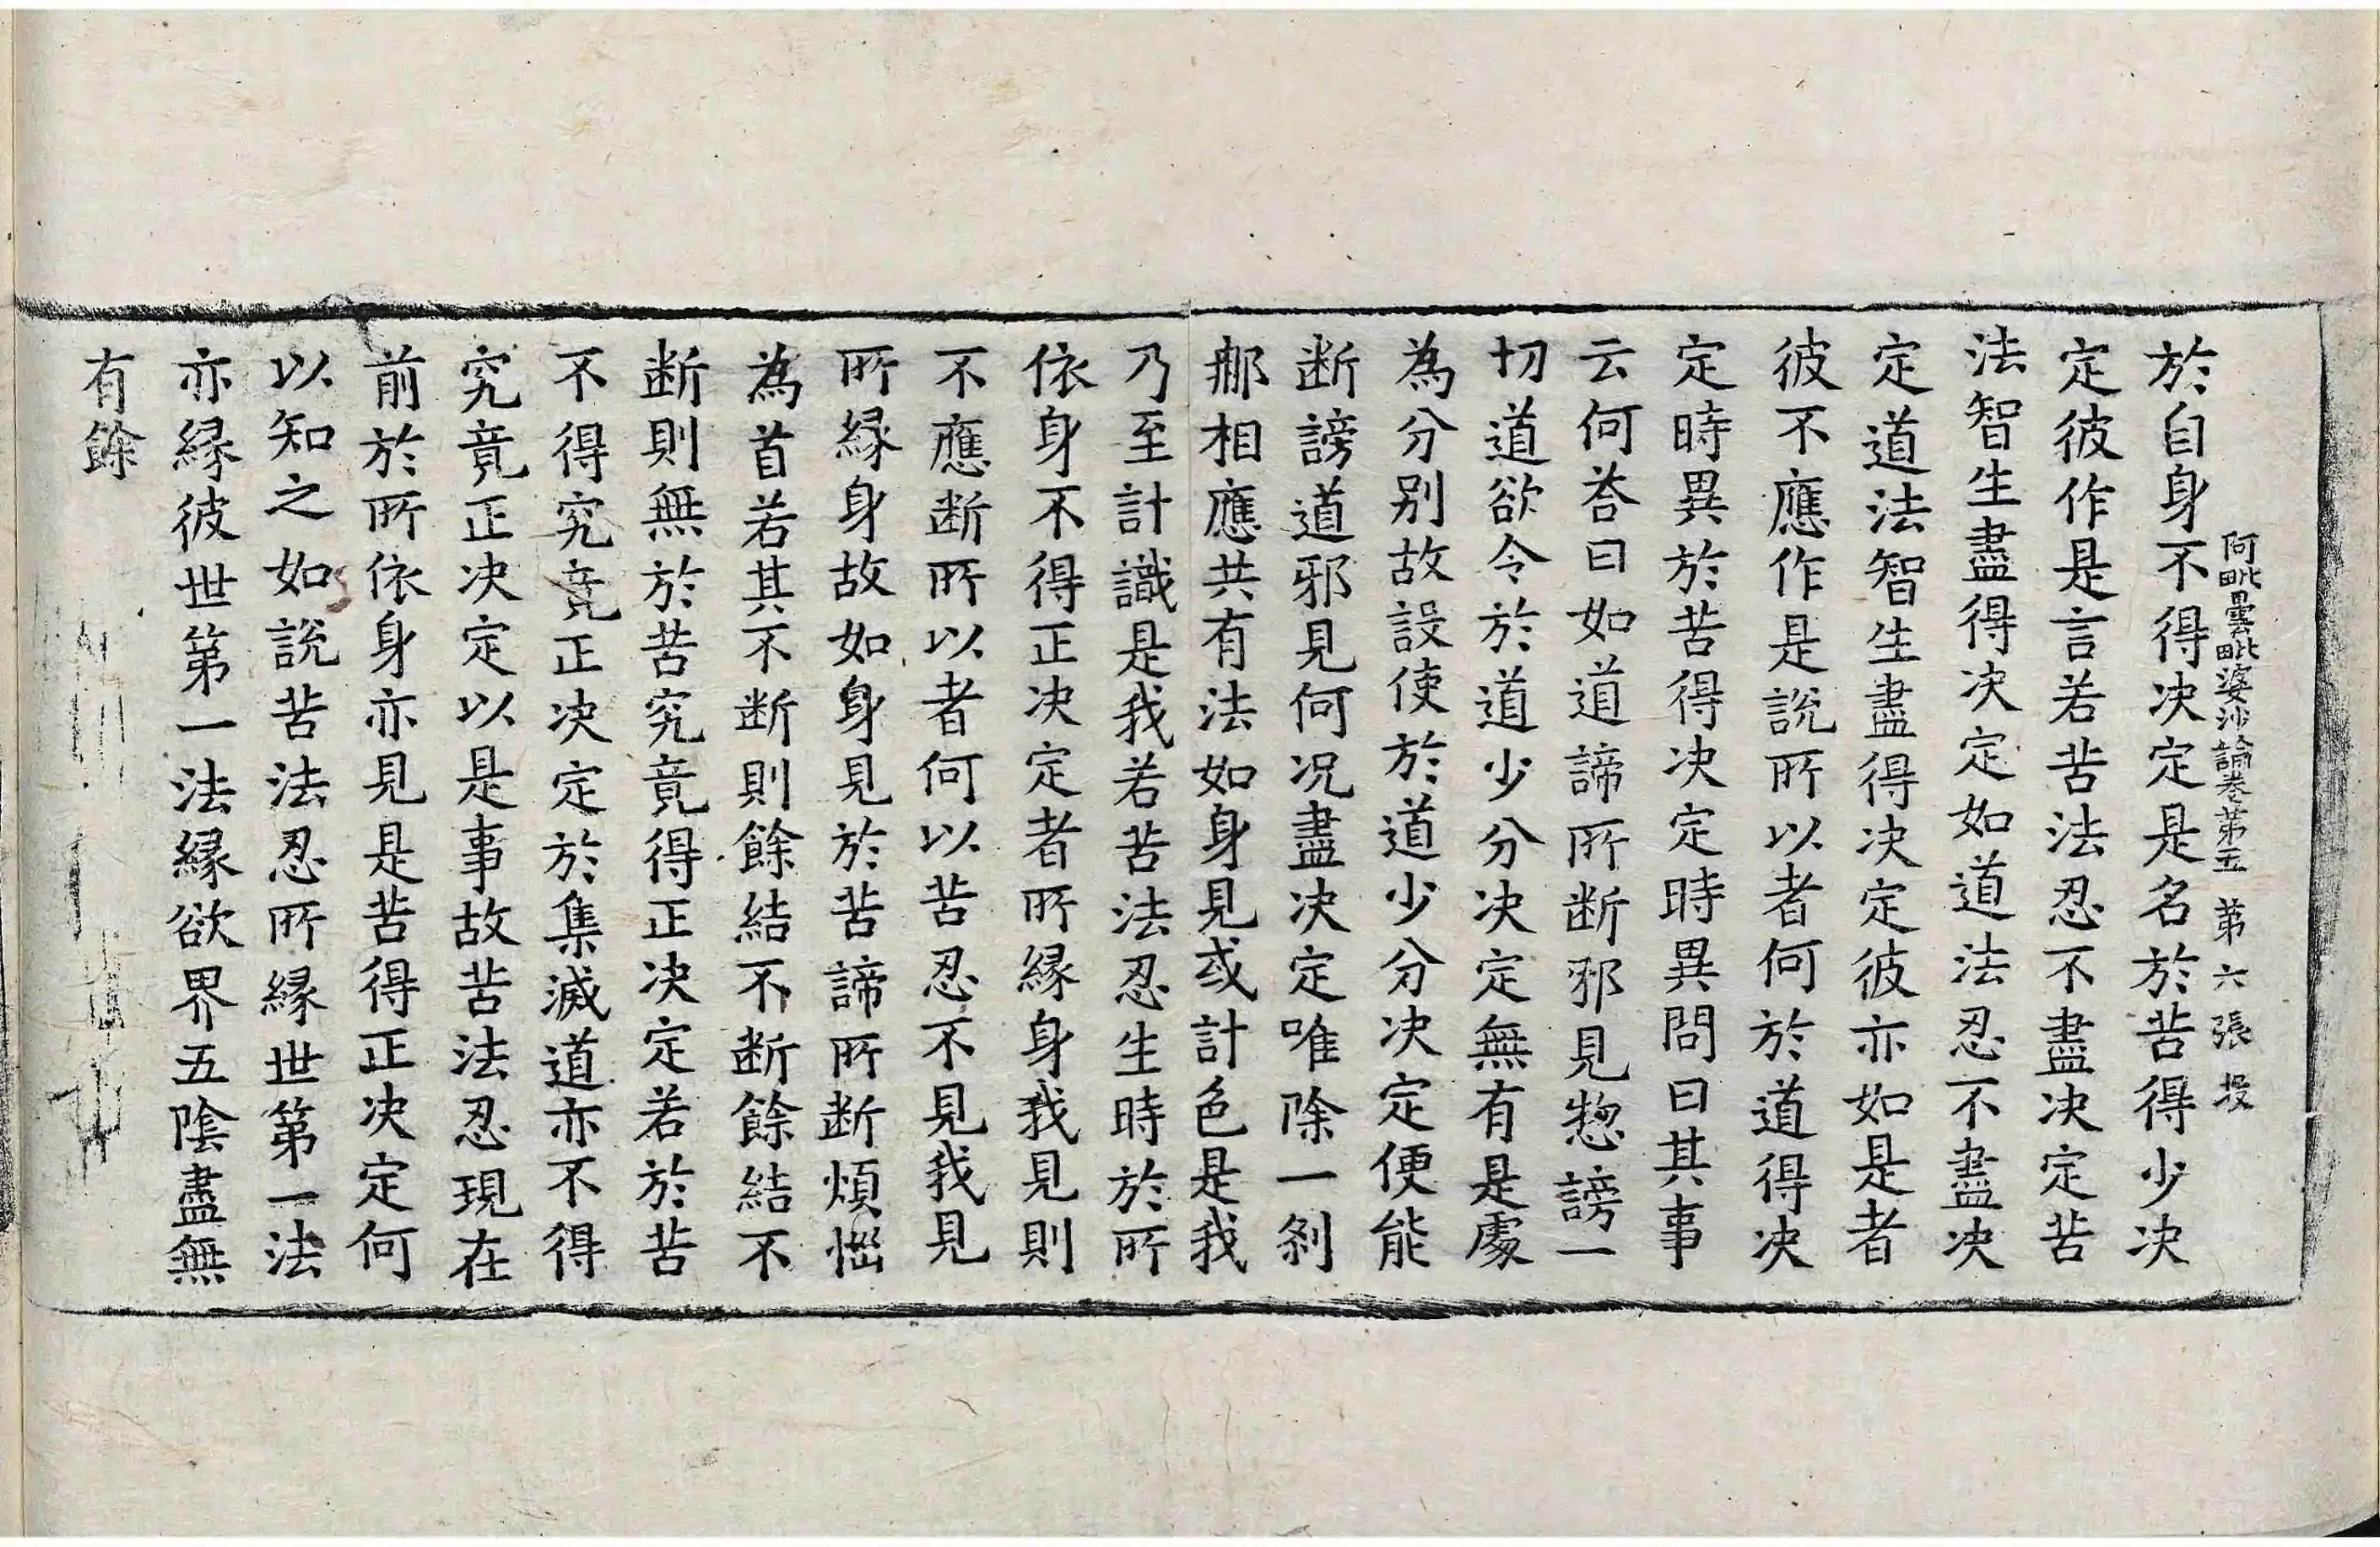 阿毗曇毗婆沙論卷第五 第六張 投
於自身不得決定是名於苦得少決
定彼作是言若苦法忍不盡決定苦
法智生盡得決定如道法忍不盡決
定道法智生盡得決定彼亦如是者
彼不應作是說所以者何於道得決
定時異於苦得決定時異問曰其事
云何荅曰如道諦所断邪見惣謗一
切道欲令於道少分決定無有是處
為分別故設使於道少分決定便能
断謗道邪見何况盡決定唯除一剎
那相應共有法如身見或計色是我
乃至計識是我若苦法忍生時於所
依身不得正決定者所縁身我見則
不應断所以者何以苦忍不見我見
所縁身故如身見於苦諦所断煩惱
為首若其不断則餘結不断餘結不
断則無於苦究竟得正決定若於苦
不得究竟正決定於集滅道亦不得
究竟正決定以是事故苦法忍現在
前於所依身亦見是苦得正決定何
以知之如說苦法忍所縁世第一法
亦縁彼世第一法縁欲界五陰盡無
有餘